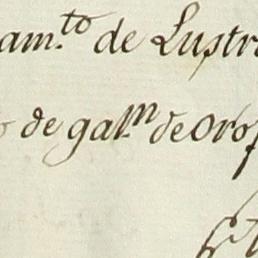 am.to de Lustr
de galm de oro